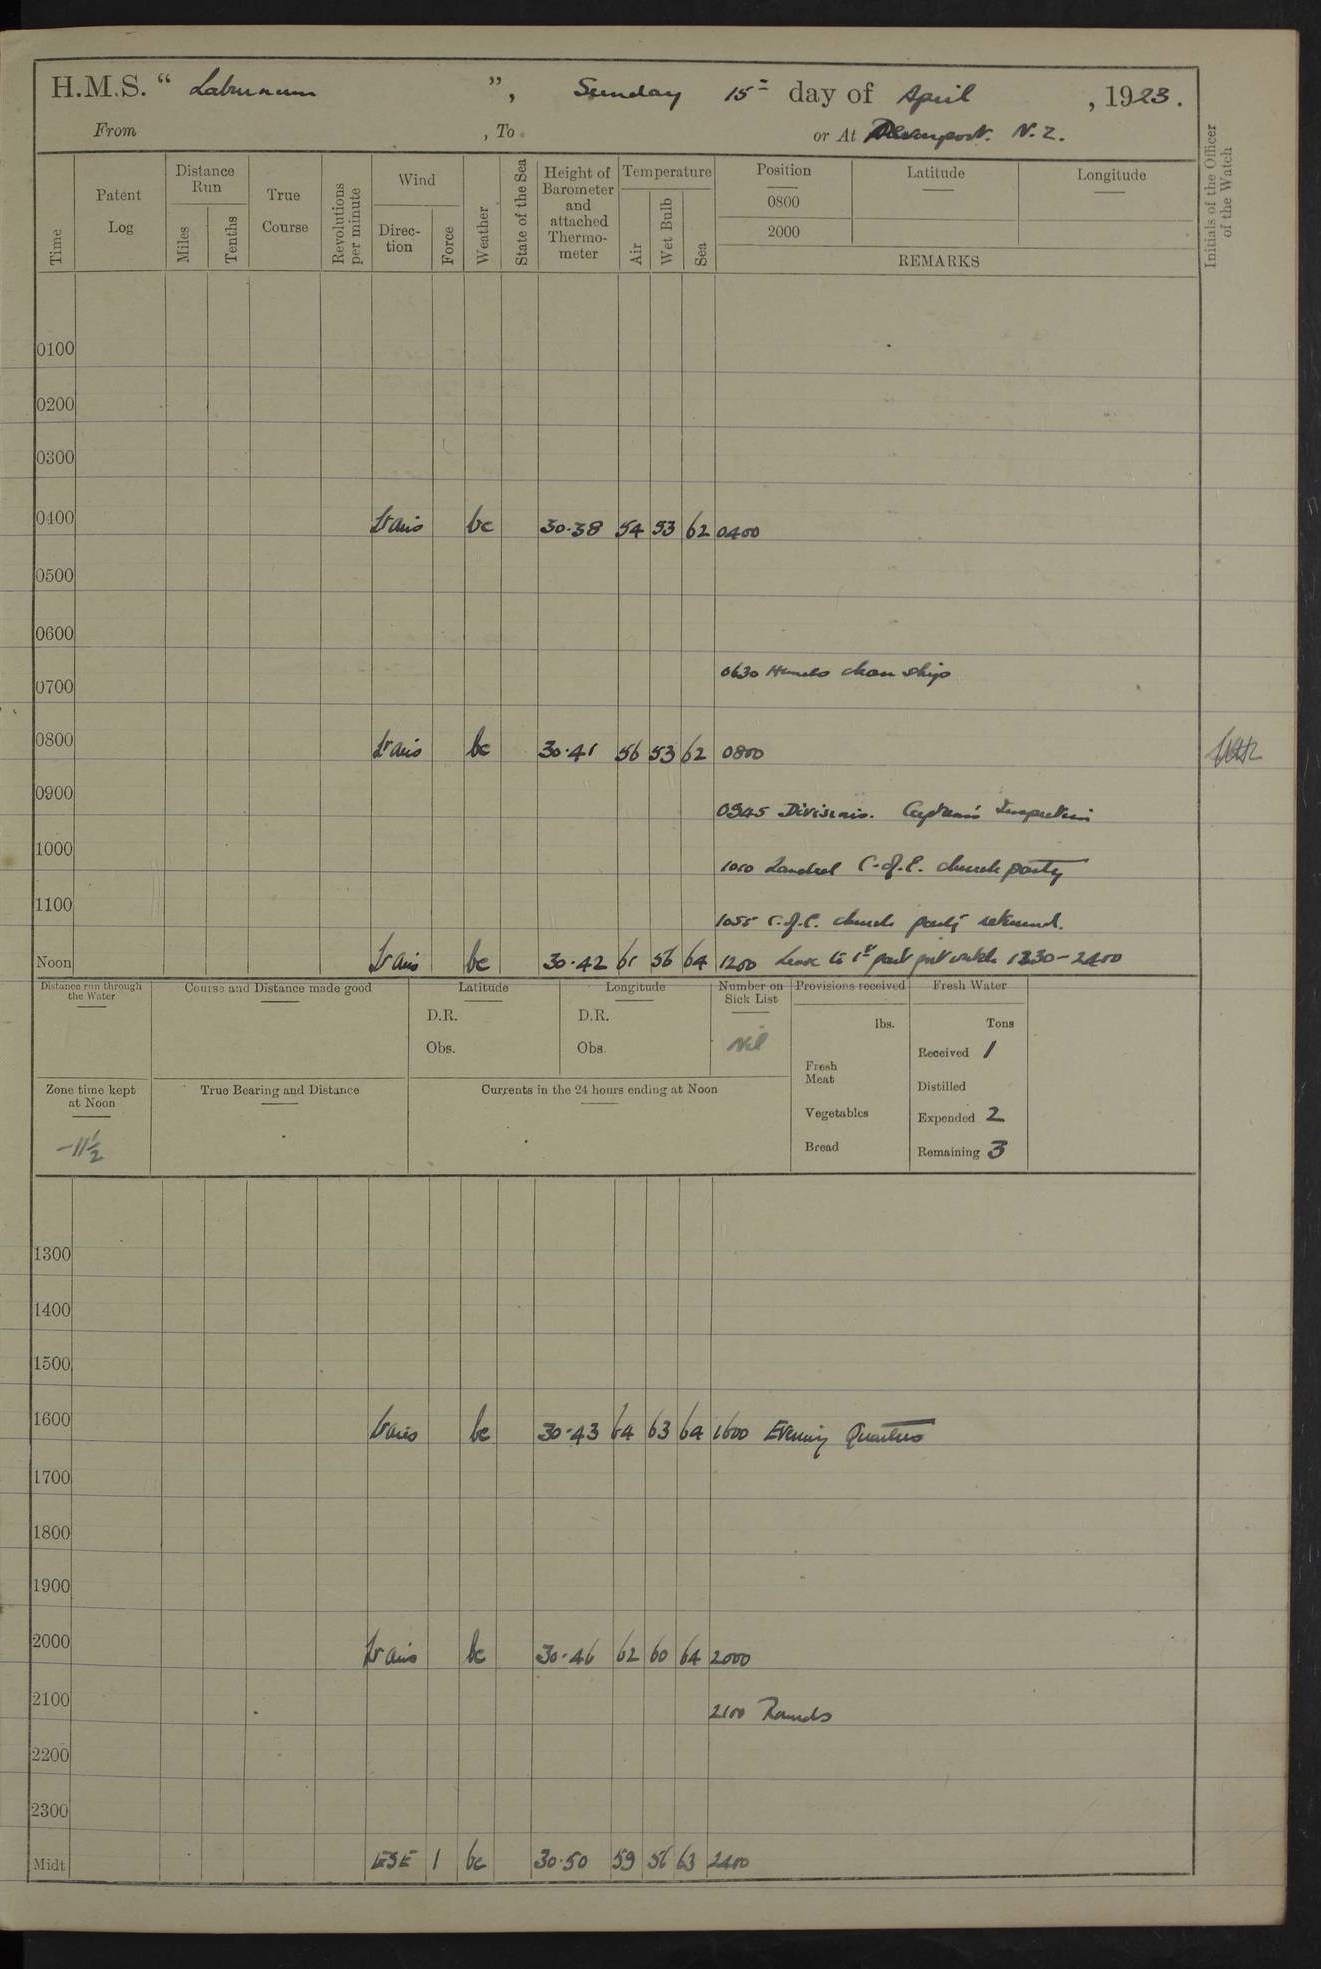 H.M.S. “ Laburnum ”, Sunday 15th day of April , 1923.
From , To or At Devonport. N.Z.
Time Patent Log Distance Run Miles Tenths True Course Revolutions per minute Wind Direc-tion Force Weather State of the Sea Height of Barometer and attached Thermo-meter Temperature Air Wet Bulb Sea Position 0800 2000 Latitude Longitude Initials of the Officer of the Watch
REMARKS
0100
0200
0300
0400 Vais bc 30.38 54 53 62 0400
0500
0600
0630 Hands clean ship
0700
0800 Vais bc 30.41 56 53 62 0800
0900
0945 Divisions. Captain's Inspection
1000
1010 Landed C. of E. church party
1100
1055 C. of E. church party returned.
Noon Vais bc 30.42 61 56 64 1200 Leave to 1st part port watch 1330-2400
Distance run through the Water Course and Distance made good Latitude Longitude Number on Sick List Provisions received Fresh Water
D.R. D.R. lbs. Tons
Obs. Obs. Nil Received 1
Fresh Meat
Distilled
Zone time kept at Noon True Bearing and Distance Currents in the 24 hours ending at Noon
Vegetables Expended 2
-11½ Bread Remaining 3
1300
1400
1500
1600 Vais bc 30.43 64 63 64 1600 Evening Quarters
1700
1800
1900
2000 Vais bc 30.46 62 60 64 2000
2100 2100 Rounds
2200
2300
Midt ESE 1 bc 30.50 59 56 63 2400